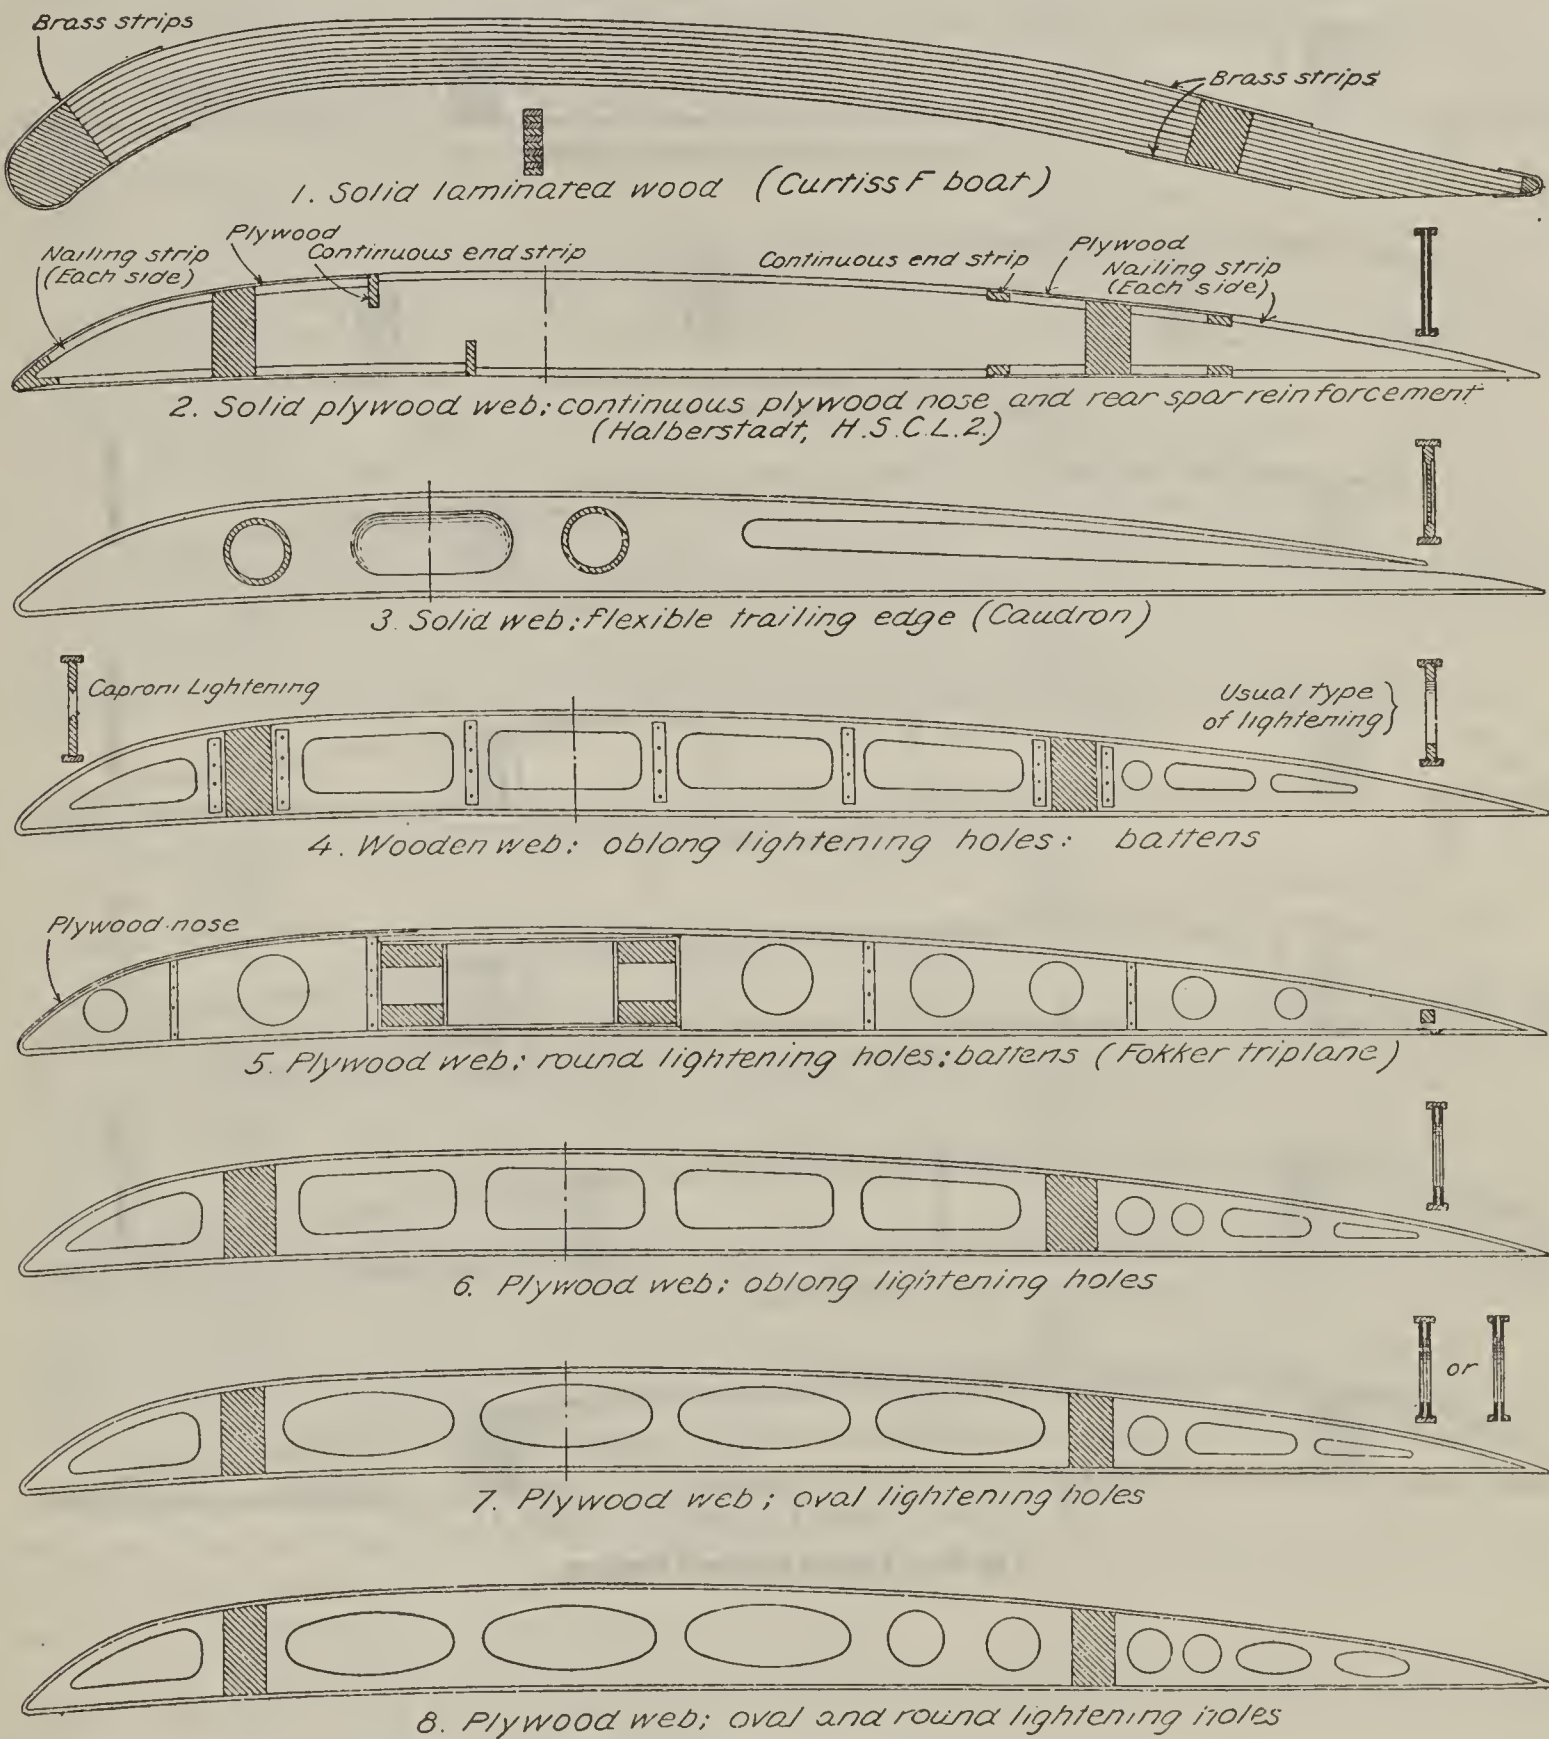 Brass strips
Brass strips
1. Solid laminated wood (Curtiss F boat)
Nailing strip
(Each side)
Plywood
Continuous end strip
Continuous end strip
Plywood
Nailing strip
(Each side)
2. Solid plywood web: continuous plywood nose and rear spar reinforcement
(Halberstadt, H.S.C.L.2.)
3. Solid web: flexible trailing edge (Caudron)
Caproni Lightening
Usual type
of lightening
4. Wooden web: oblong lightening holes: battens
Plywood nose
5. Plywood web: round lightening holes: battens (Fokker triplane)
6. Plywood web; oblong lightening holes
or
7. Plywood web; oval lightening holes
8. Plywood web; oval and round lightening holes